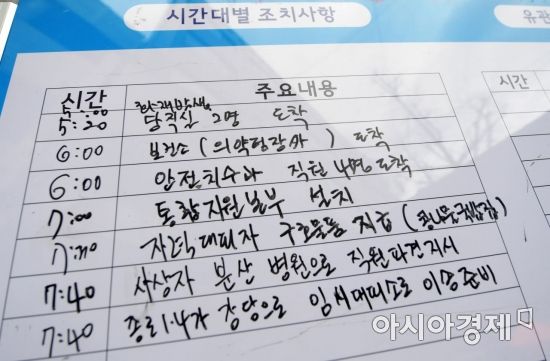 시간대별 조치사항
유관
시간 주요내용 시간
5:00 화재발생
5:20 당직실 2명 도착
6:00 보건소 (의약팀장 外) 도착
6:00 안전치수과 직원 4명 도착
7:00 통합지원본부 설치
7:20 자력대피자 구호물품 지급 (콩나물국밥집)
7:40 사상자 분산 병원으로 직원파견지시
7:40 종로1.4가 강당으로 임시대피소로 이송준비
아시아경제